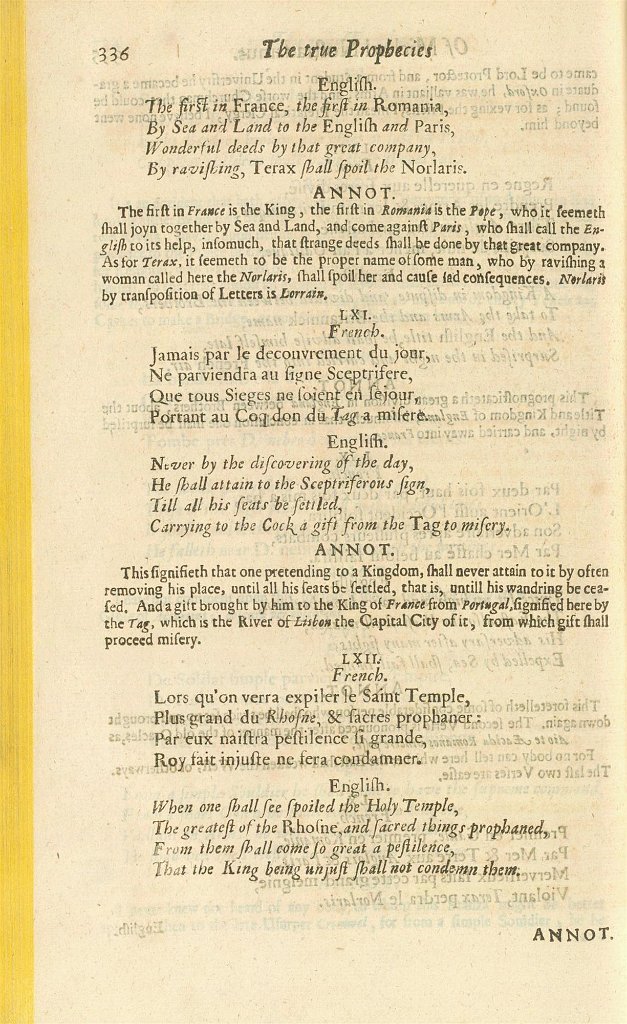 336 The true Prophecies
English.
The first in France, the first in Romania,
By Sea and Land to the English and Paris,
Wonderful deeds by that great company,
By ravishing, Terax shall spoil the Norlaris.
ANNOT.
The first in France is the King, the first in Romania is the Pope, who it seemeth
shall joyn together by Sea and Land, and come against Paris, who shall call the En-
glish to its help, insomuch, that strange deeds shall be done by that great company.
As for Terax, it seemeth to be the proper name of some man, who by ravishing a
woman called here the Norlaris, shall spoil her and cause sad consequences. Norlaris
by transposition of Letters is Lorrain.
LXI.
French.
Jamais par le decouvrement du jour,
Ne parviendra au signe Sceptrifere,
Que tous Sieges ne soient en sejour,
Portant au Coq don du Tag a misere.
English.
Never by the discovering of the day,
He shall attain to the Sceptriferous sign,
Till all his seats be settled,
Carrying to the Cock a gift from the Tag to misery.
ANNOT.
This signifieth that one pretending to a Kingdom, shall never attain to it by often
removing his place, until all his seats be settled, that is, untill his wandring be cea-
sed. And a gift brought by him to the King of France from Portugal, signified here by
the Tag, which is the River of Lisbon the Capital City of it, from which gift shall
proceed misery.
LXII.
French.
Lors qu'on verra expiler le Saint Temple,
Plus grand du Rhosne, & sacres prophaner:
Par eux naistra pestilence si grande,
Roy fait injuste ne fera condamner.
English.
When one shall see spoiled the Holy Temple,
The greatest of the Rhosne, and sacred things prophaned,
From them shall come so great a pestilence,
That the King being unjust shall not condemn them.
ANNOT.